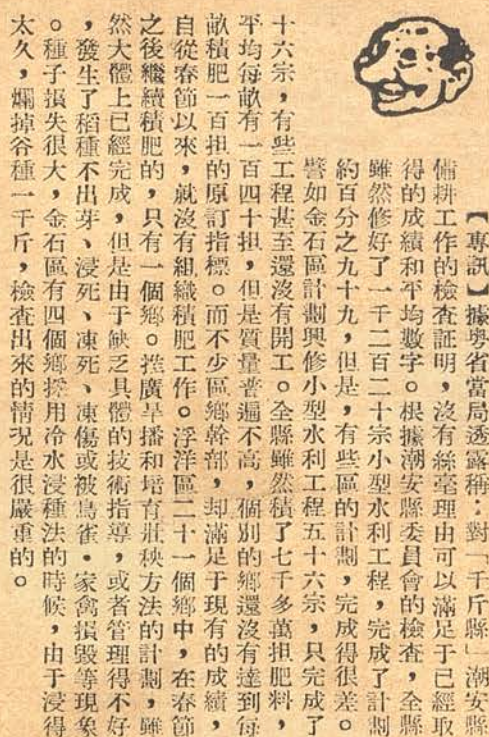 【專訊】據粵省當局透露稱：對「千斤縣」潮安縣
備耕工作的檢查証明，沒有絲毫理由可以滿足于已經取
得的成績和平均數字。根據潮安縣委員會的檢查，全縣
雖然修好了一千二百二十宗小型水利工程，完成了計劃
約百分之九十九，但是，有些區的計劃，完成得很差。
譬如金石區計劃興修小型水利工程五十六宗，只完成了
十六宗，有些工程甚至還沒有開工。全縣雖然積了七千多萬担肥料，
平均每畝有一百四十担，但是質量普遍不高，個別的鄉還沒有達到每
畝積肥一百担的原訂指標。而不少區鄉幹部，却滿足于現有的成績，
自從春節以來，就沒有組織積肥工作。浮洋區二十一個鄉中，在春節
之後繼續積肥的，只有一個鄉。推廣旱播和培育壯秧方法的計劃，雖
然大體上已經完成，但是由于缺乏具體的技術指導，或者管理得不好
，發生了稻種不出芽、浸死、凍死、凍傷或被鳥雀・家禽損毀等現象
。種子損失很大，金石區有四個鄉採用冷水浸種法的時候，由于浸得
太久，爛掉谷種一千斤，檢查出來的情況是很嚴重的。